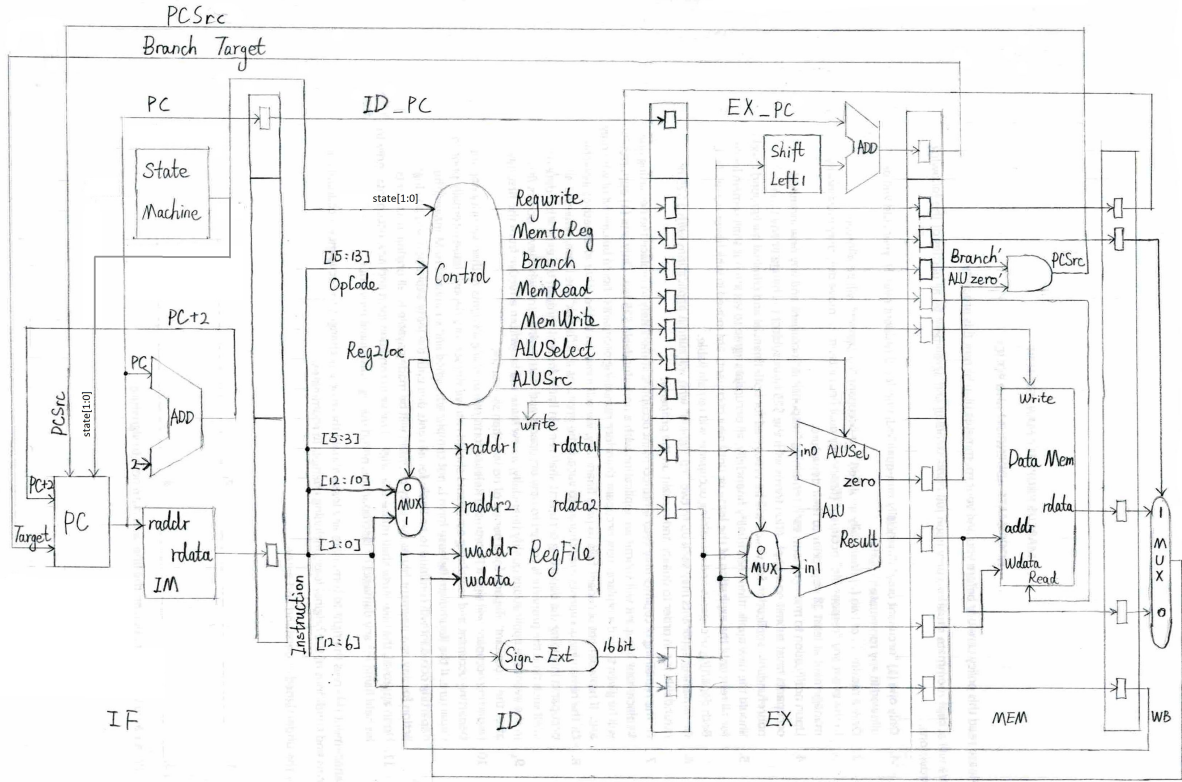 PCSrc
Branch Target
PC
ID_PC
EX_PC
State
Machine
Shift
Left1
ADD
state[1:0]
Regwrite
MemtoReg
Branch
MemRead
MemWrite
ALUSelect
ALUSrc
[15:13]
OpCode
Control
Branch'
ALUzero'
PCSrc
PC+2
Reg2loc
PC
ADD
2
PCSrc
state[1:0]
PC+2
Target
PC
raddr
rdata
IM
Instruction
[5:3]
[12:10]
[2:0]
[12:6]
0
MUX
1
write
raddr1
rdata1
raddr2
rdata2
waddr
RegFile
wdata
Sign-Ext
16bit
0
MUX
1
in0
ALUSel
zero
ALU
Result
in1
Write
Data Mem
rdata
addr
Wdata
Read
1
M
U
X
0
IF
ID
EX
MEM
WB